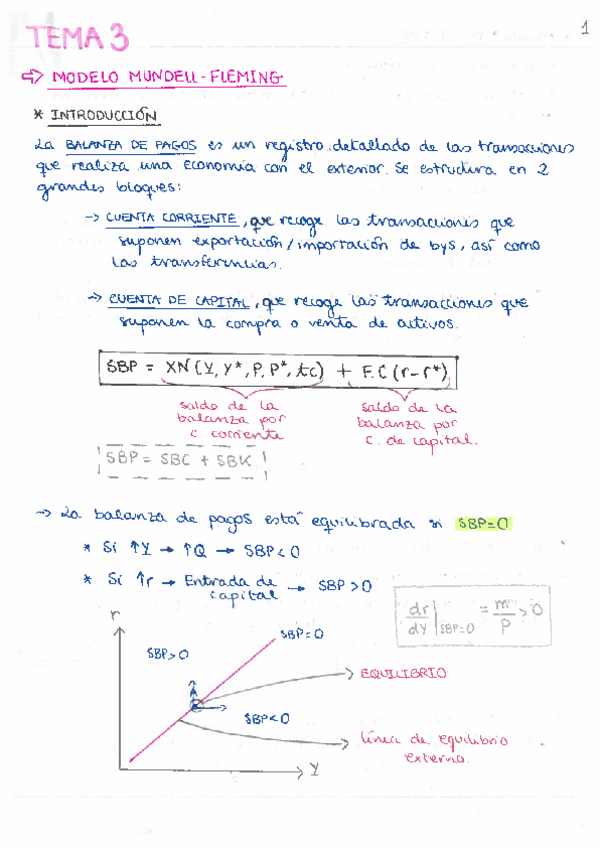 1
TEMA 3
⇨ MODELO MUNDELL-FLEMING
* INTRODUCCIÓN
La BALANZA DE PAGOS es un registro detallado de las transacciones
que realiza una economía con el exterior. Se estructura en 2
grandes bloques:
→ CUENTA CORRIENTE, que recoge las transacciones que
suponen exportación/importación de bys, así como
las transferencias.
→ CUENTA DE CAPITAL, que recoge las transacciones que
suponen la compra o venta de activos.
SBP = XN(Y, Y*, P, P*, tc) + F.C (r-r*)
saldo de la
balanza por
c. corriente
saldo de la
balanza por
c. de capital.
SBP = SBC + SBK
→ La balanza de pagos está equilibrada si SBP=0
* Si ↑Y → ↑Q → SBP<0
* Si ↑r → Entrada de
capital → SBP>0
dr/dY |SBP=0 = m/P > 0
r
SBP=0
SBP>0
EQUILIBRIO
SBP<0
línea de equilibrio
externo.
Y